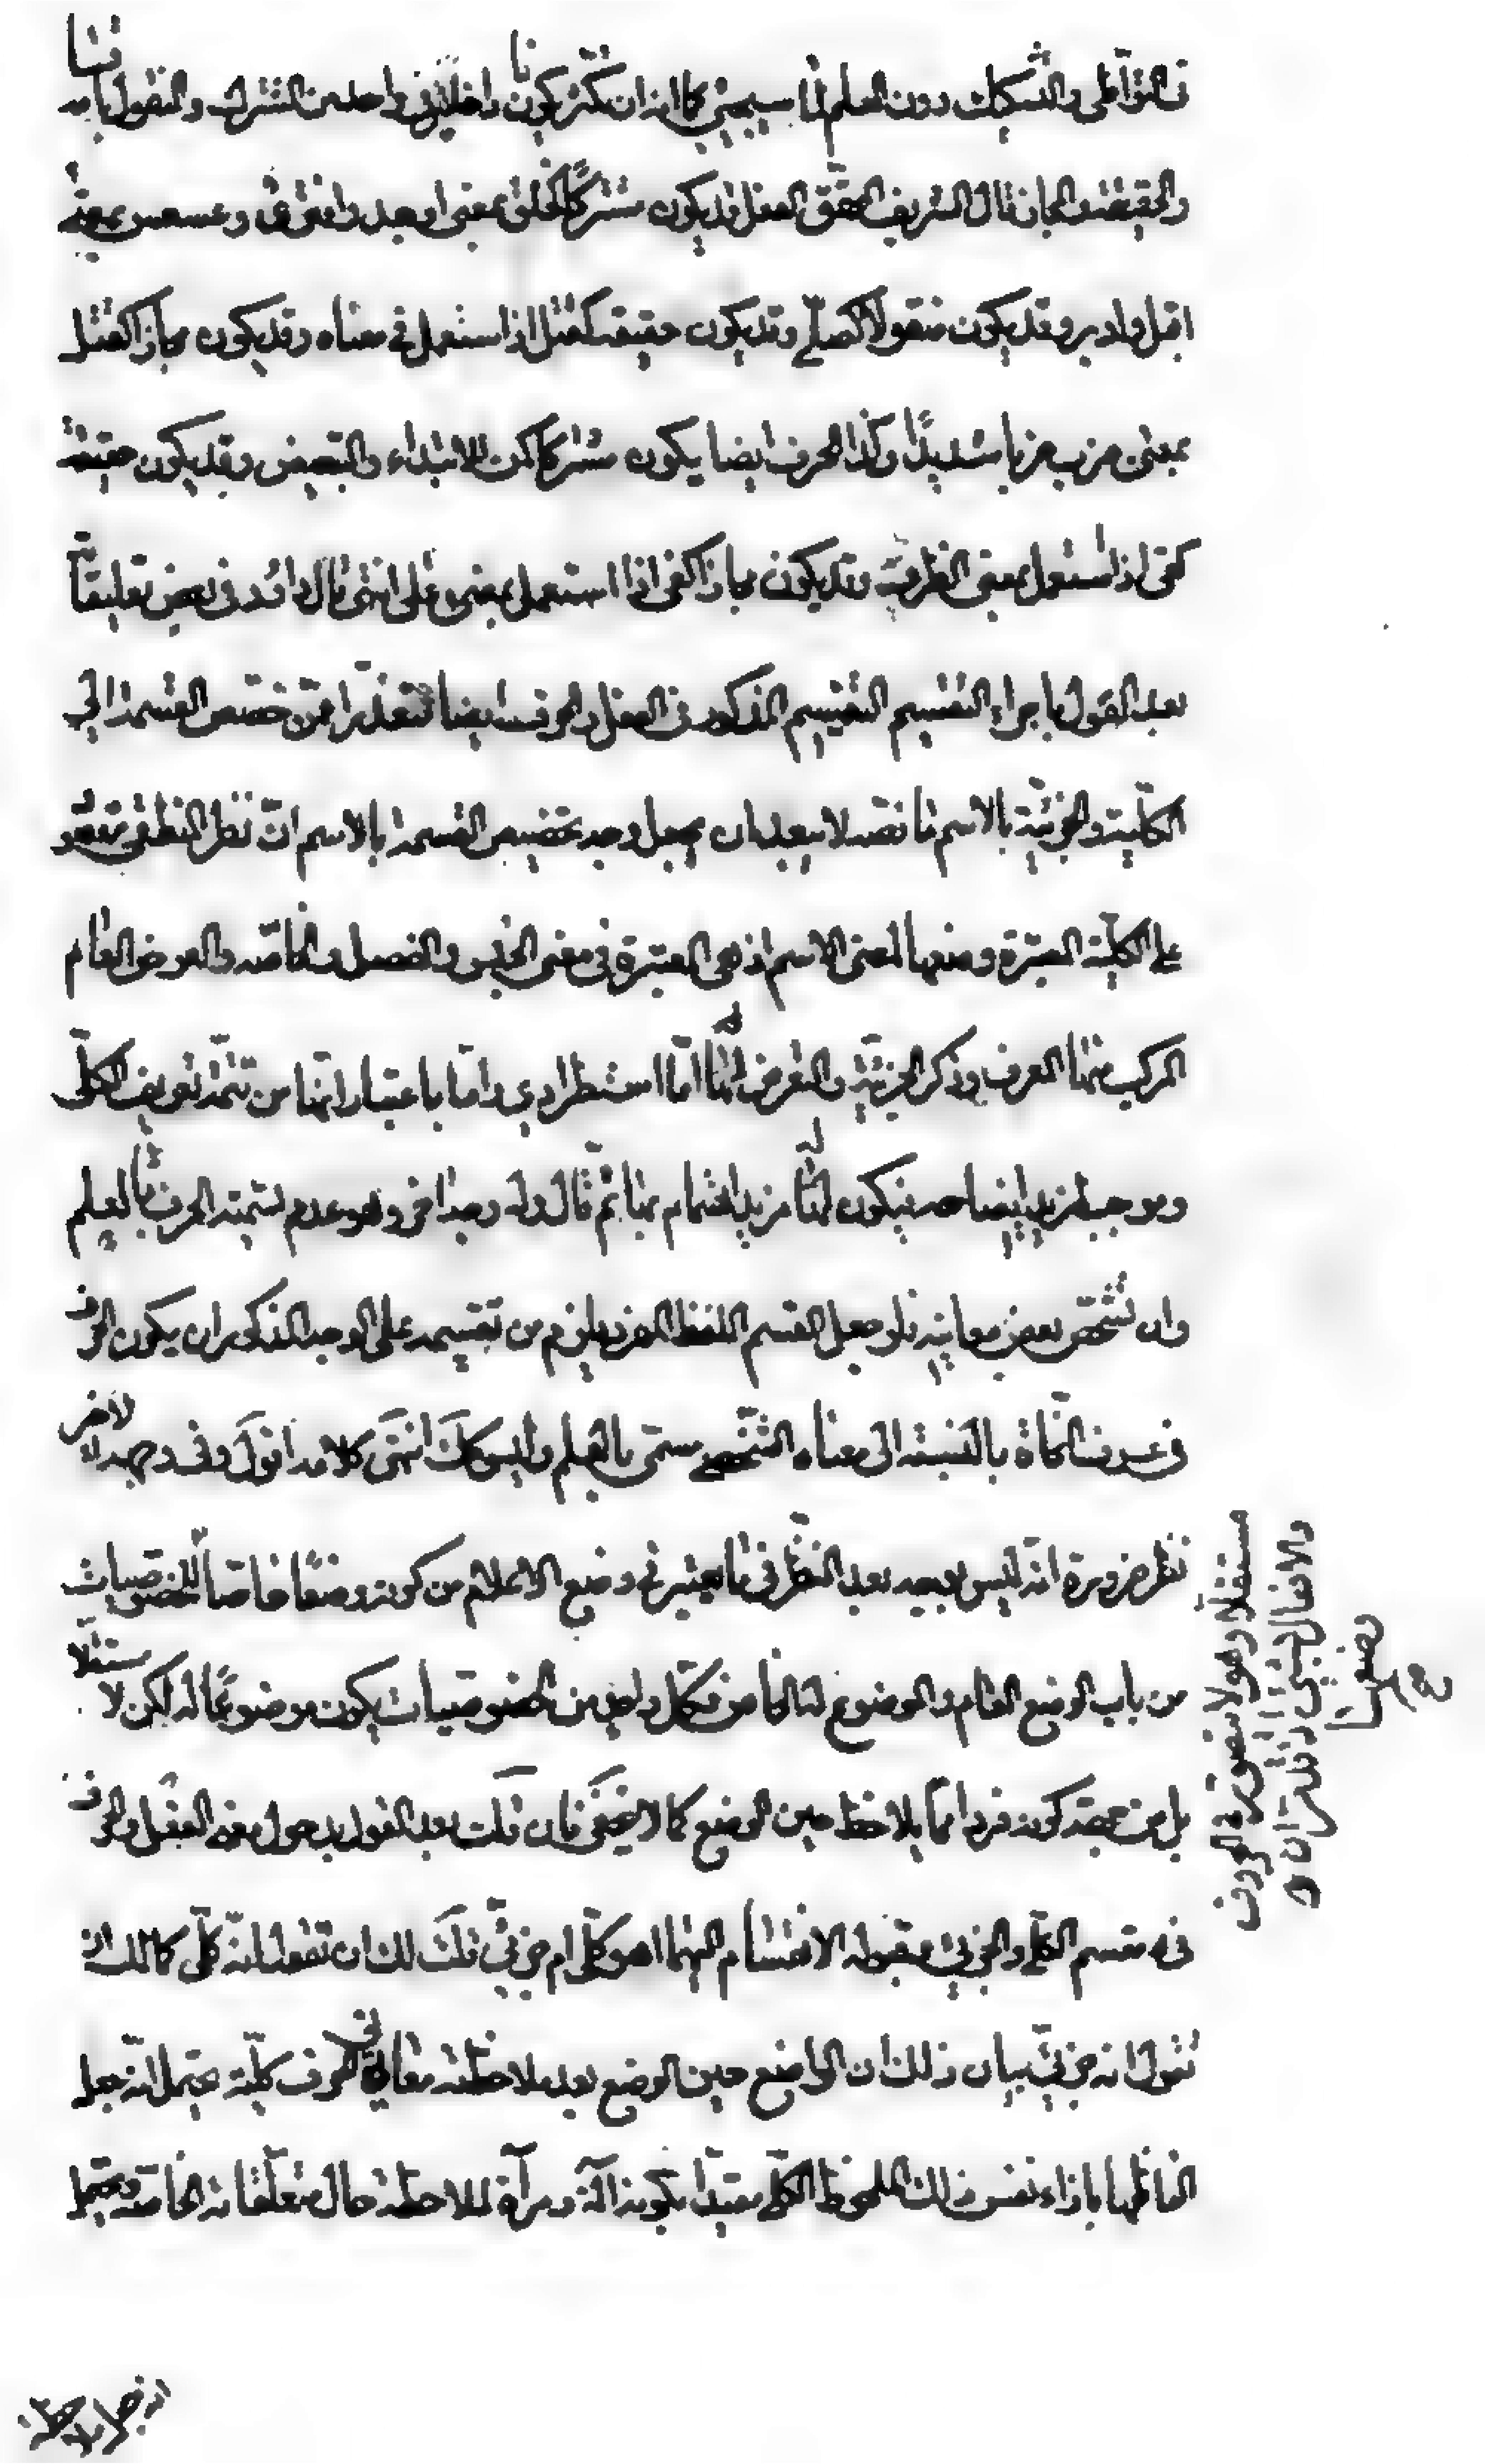 في المتواطي والمشكك دون العلم لما سيجيئ كما انه ان تكثر يكونان داخلين في واحد من المشترك والمنقول باقسامه
والحقيقة والمجاز قال الشريف المحقق الفعل قد يكون مشتركا كخلق بمعنى اوجد وافترى وعسعس بمعنى
اقبل وادبر وقد يكون منقولا كصلى وقد يكون حقيقة كقتل اذا استعمل في معناه وقد يكون مجازا كقتل
بمعنى ضرب ضربا شديدا وكذا الحرف ايضا يكون مشتركا كمن للابتداء والتبعيض وقد يكون حقيقة
كفي اذا استعمل بمعنى الظرفية وقد يكون مجازا كفي اذا استعمل بمعنى على انتهى قال داود في بعض تعليقاته
بعد القول باجراء التقسيم التقسيم المذكور في الفعل والحرف ايضا معتذرا عمن خصص القسمة الى
الكلية والجزئية بالاسم ما نصه لا يبعد ان يجعل وجه تخصيص القسمة بالاسم ان نظر المنطقي مقصور
على الكلية المعتبرة ومنعها لمعنى الاسم اذ هي المعتبرة في معنى الجنس والفصل والخاصة والعرض العام
المركب منها المعرف وذكر الجزئية والتعرض لها اما استطرادي واما باعتبار انها من تتمة تعريف الكلي
وموجب لمزيد ايضاحه فيكون لها مزيد اهتمام بها ثم قال وله وجه اخر وهو عدم تسمية الحرف بالعلم
وان تشخص بعض معانيه فلو جعل المقسم اللفظ المفرد يلزم من تقسيمه على الوجه المذكور ان يكون الحرف
في عرف النحاة بالنسبة الى معناه المتشخص مسمى بالعلم وليس كك انتهى كلامه اقول وفي وجهه الاخر
نظر ضرورة انه ليس بوجه بعد النظر في ما يعتبر في وضع الاعلام من كونه وضعا خاصا للخصوصيات
من باب الوضع العام والموضوع له الخاص فكل واحد من الخصوصيات يكون موضوعا له لكن لا مستقلا
بل من جهة كونه فردا مما يلاحظ حين الوضع كما لا يخفى فان قلت بعد القول بدخول معنى الفعل والحرف
في مقسم الكلي والجزئي وقبوله الانقسام اليهما اهو كلي ام جزئي قلت لك ان تقول انه كلي كما لك ان
تقول انه جزئي بيان ذلك ان الواضع حين الوضع بعد ملاحظته معاني الحروف كلية يحتمل انه جعل
الفاظها بازاء نفس ذلك الملحوظ الكلي مقيدا بكونه الة ومرآة لملاحظة حال متعلقاته الخاصة ويحتمل
مستقلا وهو لا يتصور في الحروف